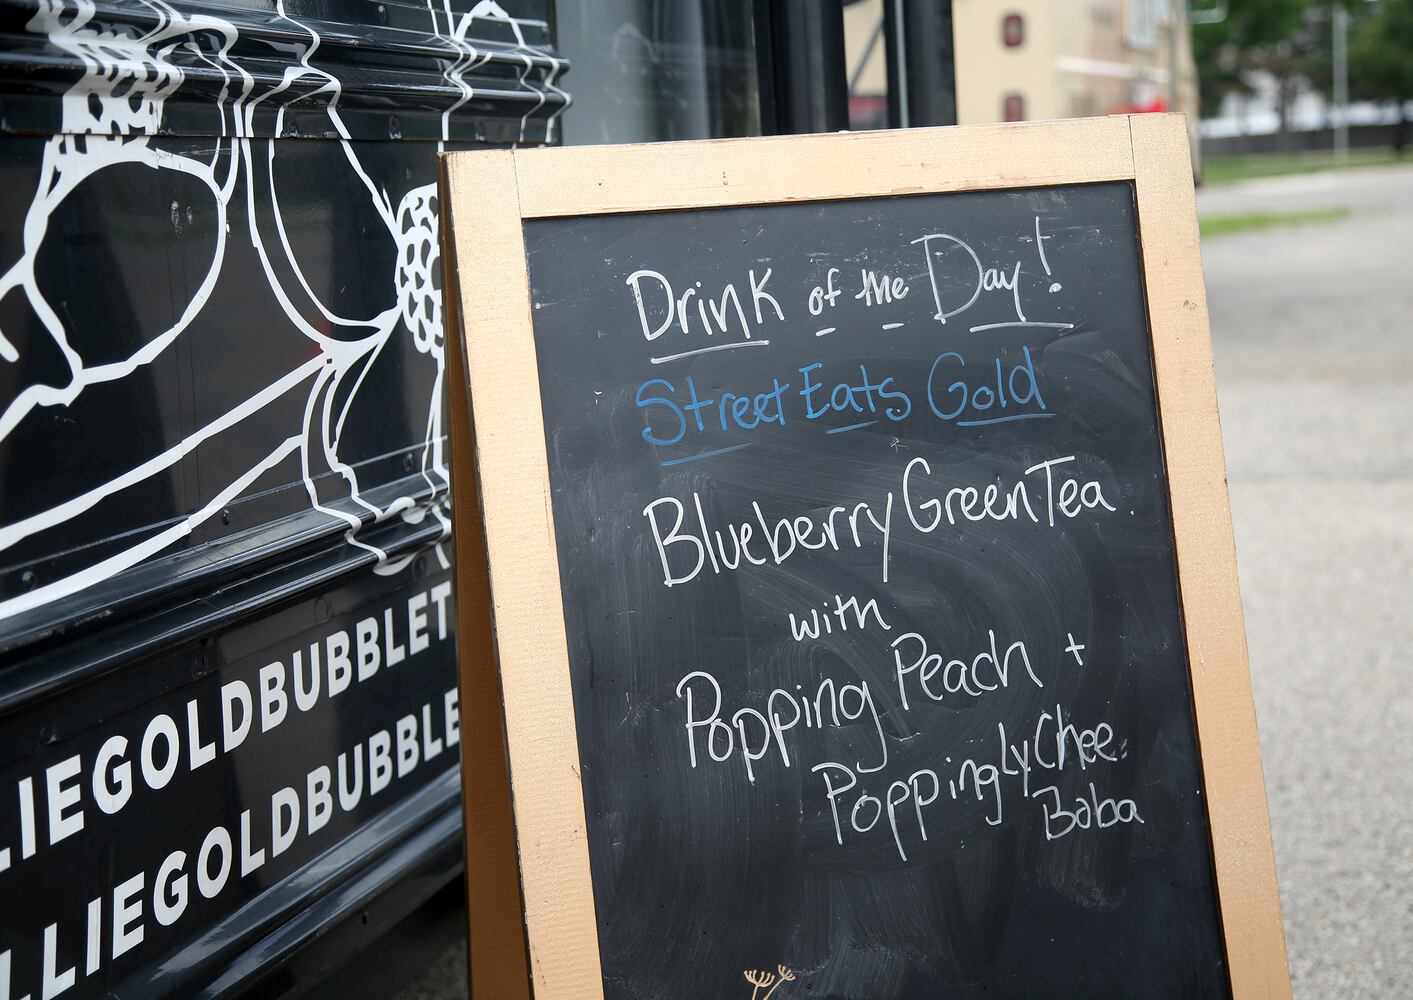 Drink of the Day!
Street Eats Gold
Blueberry Green Tea
with
Popping Peach +
Popping Lychee
Boba
LIEGOLDBUBBLET
LLIEGOLDBUBBLE